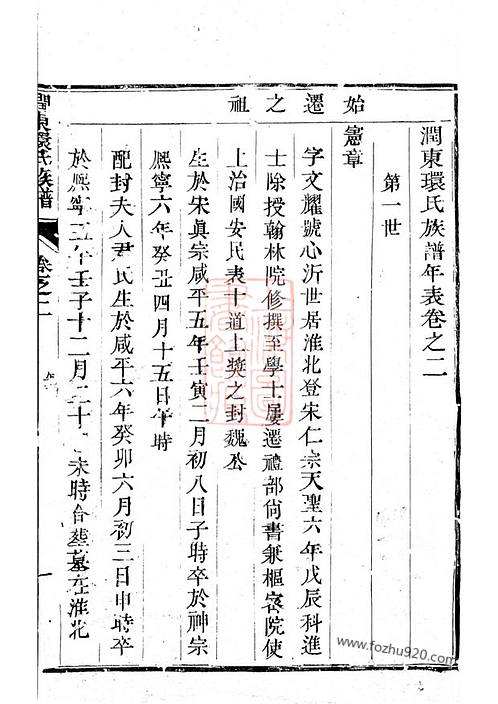 潤東環氏族譜年表卷之二
第一世
始遷之祖
憲章
字文耀號心沂世居淮北登宋仁宗天聖六年戊辰科進
士除授翰林院修撰至學士屢遷禮部尚書兼樞密院使
上治國安民表十道上奬之封魏公
生於宋眞宗咸平五年壬寅二月初八日子時卒於神宗
熈寧六年癸丑四月十五日午時
配封夫人尹氏生於咸平六年癸卯六月初三日申時卒
於熈寧五年壬子十二月二十未時合塟墓在淮北
潤東環氏族譜
卷之二
一
www.fozhu920.com